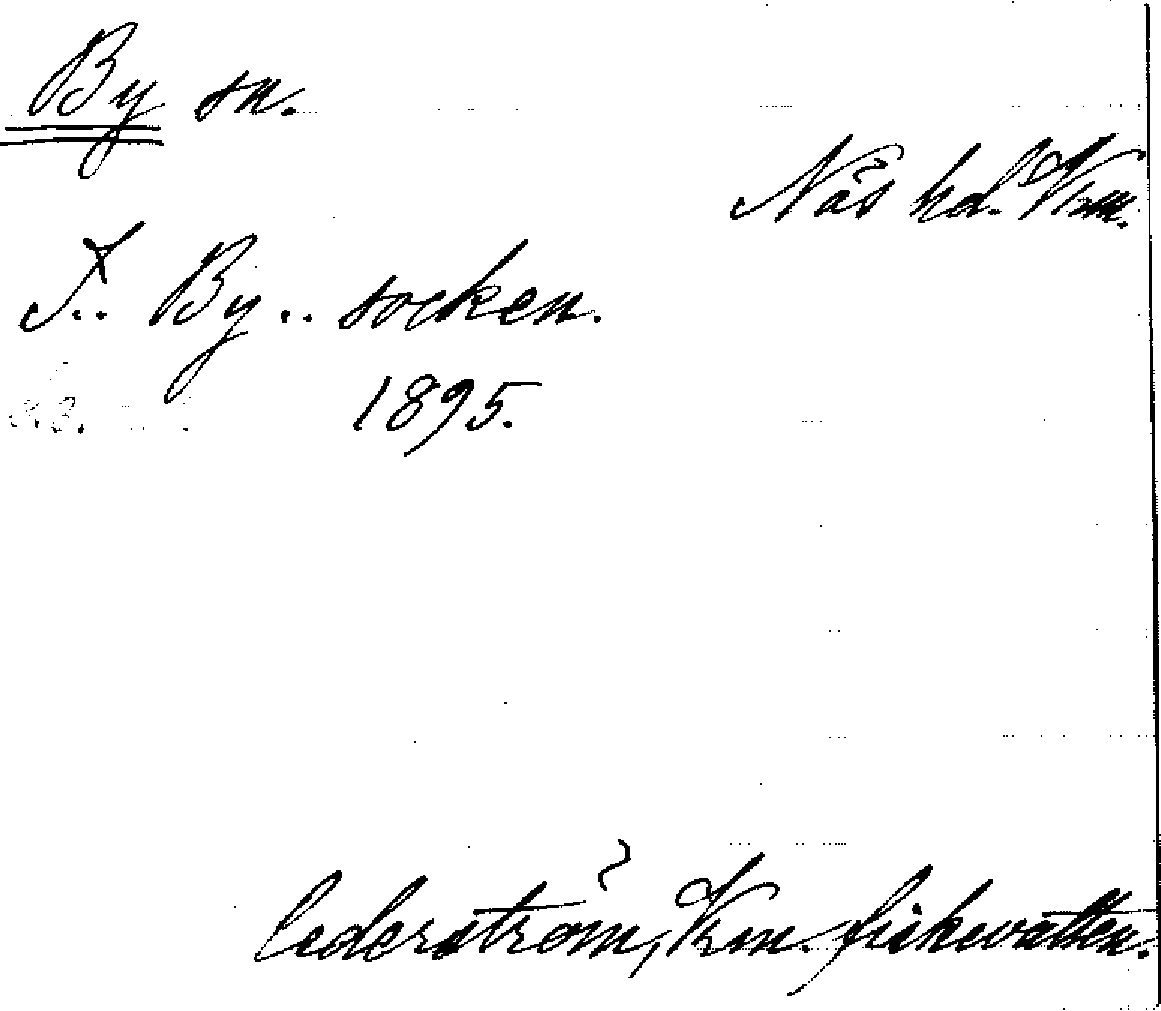 By sn.
Näs hd. Vrm.
I.. By.. socken.
1895.
Cederström, Vrm. fiskevatten.